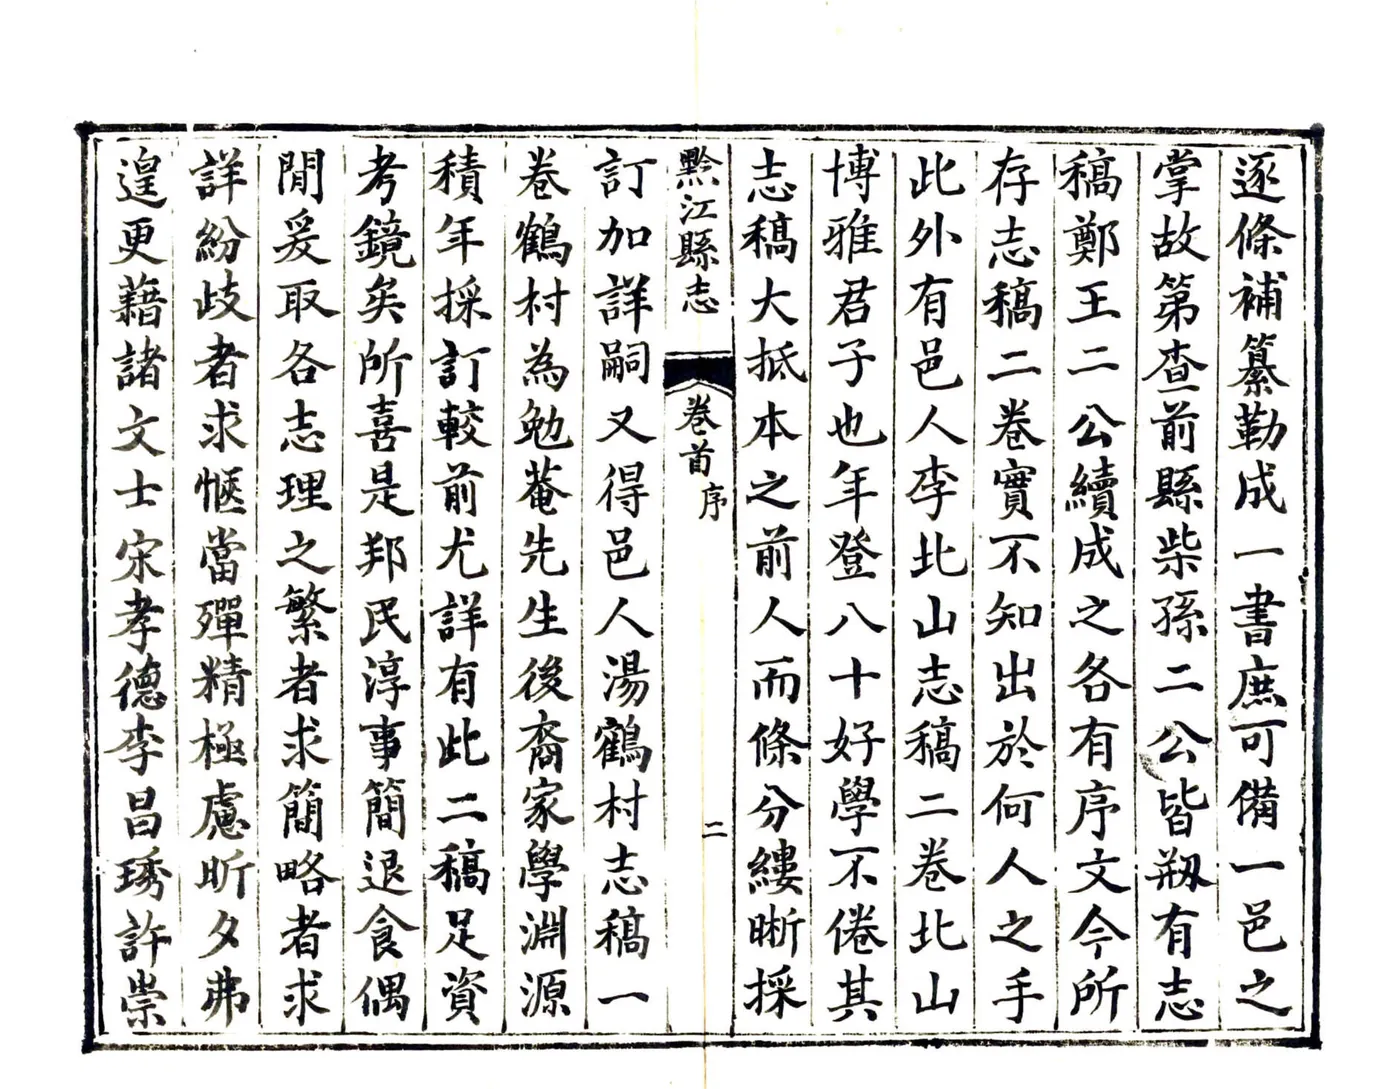 逐條補纂勒成一書庶可備一邑之
掌故第查前縣柴孫二公皆剏有志
稿鄭王二公續成之各有序文今所
存志稿二卷實不知出於何人之手
此外有邑人李北山志稿二卷北山
博雅君子也年登八十好學不倦其
志稿大抵本之前人而條分縷晰採
黔江縣志
卷首
序
二
訂加詳嗣又得邑人湯鶴村志稿一
卷鶴村為勉菴先生後裔家學淵源
積年採訂較前尤詳有此二稿足資
考鏡矣所喜是邦民淳事簡退食偶
閒爰取各志理之繁者求簡略者求
詳紛歧者求愜當殫精極慮昕夕弗
遑更藉諸文士宋孝德李昌琇許崇